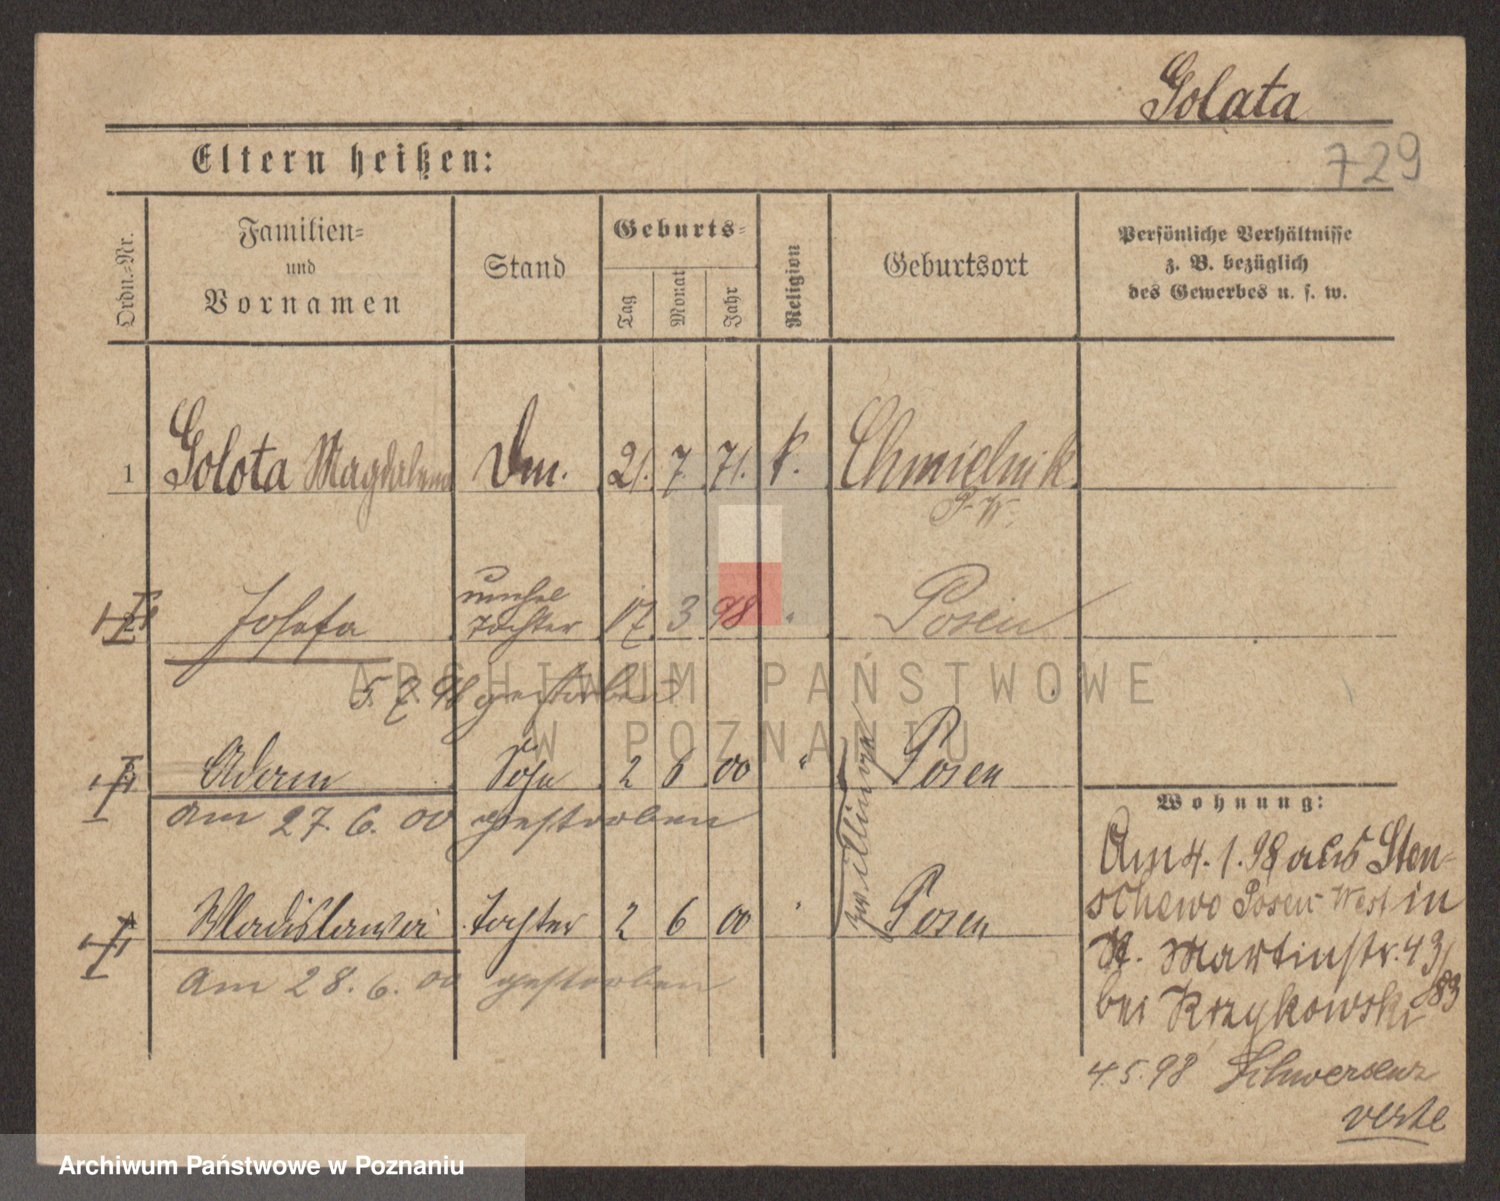 Golata
729
Eltern heißen:
Ordn.-Nr.
Familien-
und
Vornamen
Stand
Geburts-
Tag
Monat
Jahr
Religion
Geburtsort
Persönliche Verhältnisse
z. B. bezüglich
des Gewerbes u. s. w.
1 Golota Magdalena Dm. 21. 7. 71. k. Chmielnik
P. W.
Josefa unehel Tochter 17. 3 98 " Posen
5. 7. 98 gestorben
Adam Sohn 2 6 00 " Posen
am 27. 6. 00 gestorben
Zwillinge
Wladislawa Tochter 2 6 00 " Posen
am 28. 6. 00 gestorben
Wohnung:
Am 4. 1. 98 aus Sten-
schewo Posen West in
St. Martinstr. 43/
83
bei Krzykowski
4. 5. 98 Schwersenz
verte
ARCHIWUM PAŃSTWOWE
W POZNANIU
Archiwum Państwowe w Poznaniu